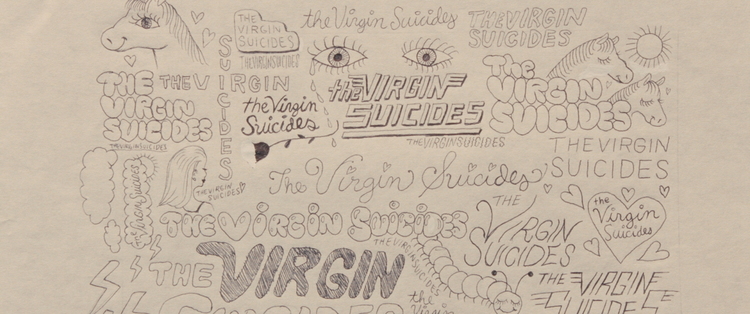 THE
VIRGIN
SUICIDES
THE VIRGIN SUICIDES
the Virgin Suicides
THE VIRGIN
SUICIDES
THE
VIRGIN
SUICIDES
THE VIRGIN SUICIDES
THE VIRGIN
SUICIDES
the Virgin
Suicides
the VIRGIN
SUICIDES
The
VIRGIN
SUICIDES
THE VIRGIN SUICIDES
THE VIRGIN
SUICIDES
the Virgin Suicides
THE VIRGIN
SUICIDES
The Virgin Suicides
THE VIRGIN SUICIDES
THE
VIRGIN
SUICIDES
the
Virgin
Suicides
THE VIRGIN
SUICIDES
THE VIRGIN SUICIDES
the
Virgin
THE VIRGIN
SUICIDES